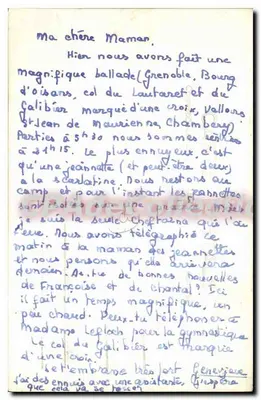 Ma chère Maman,
Hier nous avons fait une
magnifique ballade (Grenoble, Bourg
d'Oisans, col du Lautaret et du
Galibier marqué d'une croix, Valloire
St Jean de Maurienne, Chambéry)
Parties à 5h30 nous sommes
à 21h15. Le plus ennuyeux, c'est
qu'une jeannette (et peut-être deux)
a la scarlatine. Nous restons au
camp et pour l'instant les jeannettes
sont
je suis la seule cheftaine qui l'ai
eue. Nous avons télégraphié ce
matin à la maman des jeannettes
et nous pensons qu'elles
demain. As-tu de bonnes nouvelles
de Françoise et de Chantal? Ici
il fait un temps magnifique, un
peu chaud. Peux-tu téléphoner à
Madame pour la gymnastique
Le col du Galibier est marqué
d'une croix.
Je t'embrasse très fort Geneviève
J'ai des ennuis avec une assistante J'espère
que cela va se passer